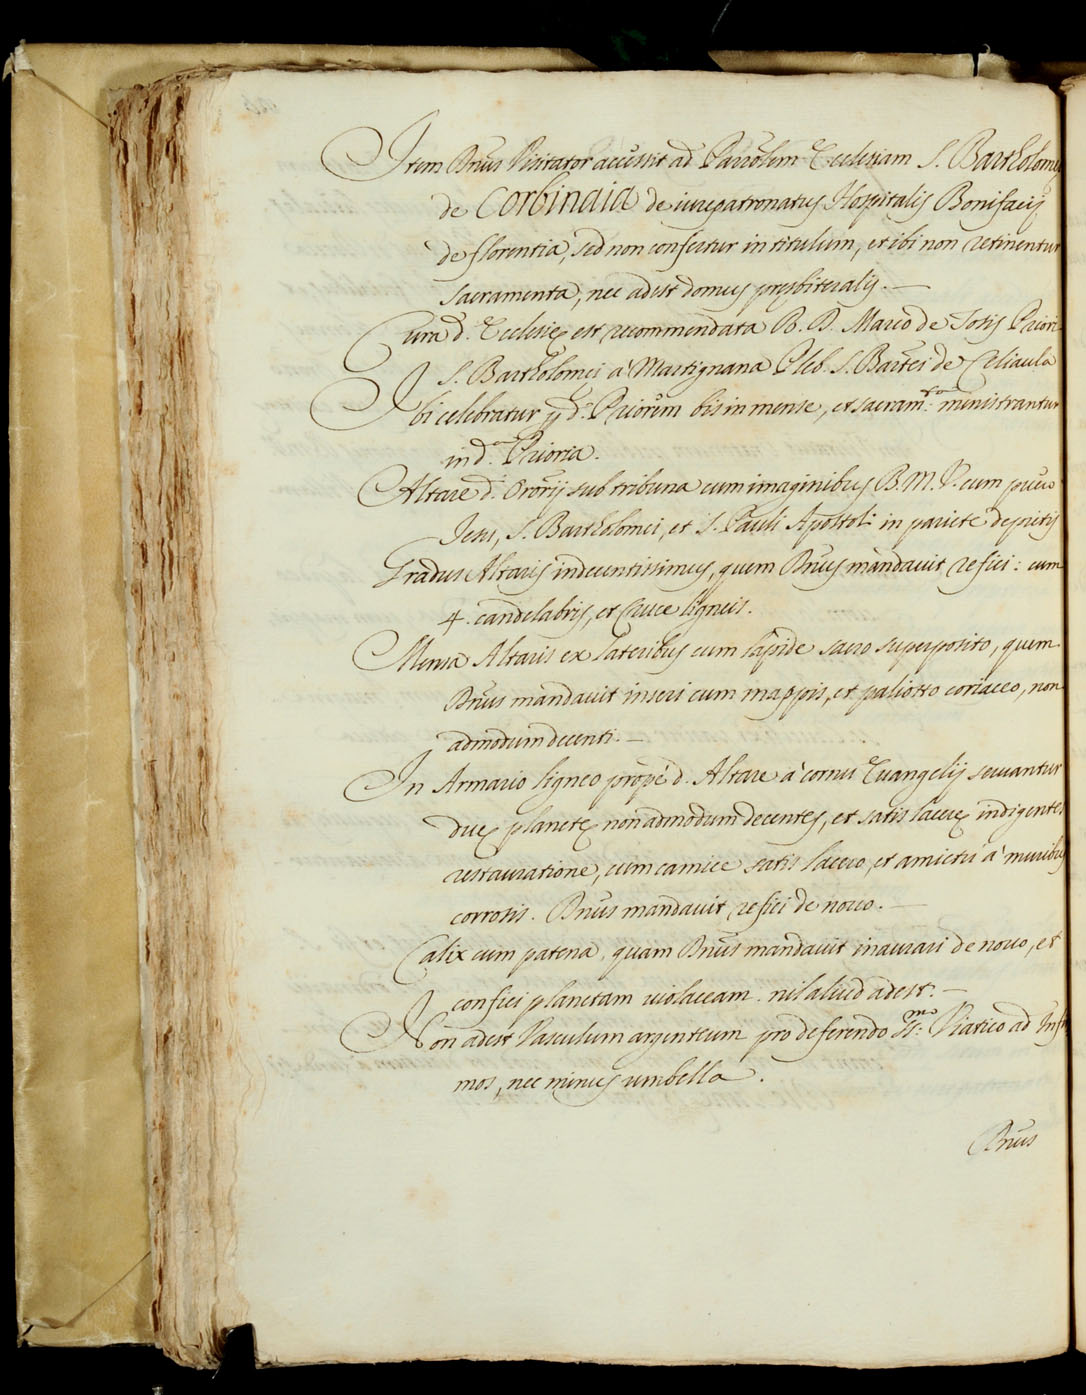 Item Dñus Visitator accessit ad Parrōlem Ecclesiam S. Bartholomei
de Corbinaia de iurepatronatus Hospitalis Bonifacij
de florentia, sed non confertur in titulum, et ibi non retinentur
sacramenta, nec adest domus presbiteralis. —
Cura d. Ecclesię est recommendata R. D. Marco de Totis Priori
S. Bartholomei à Martignana Pleb. S. Bartēi de Celiaula
Ibi celebratur d. Priorem bis in mense, et sacram.ta ministrantur
in d.a Prioria.
Altare d.i Orōrij sub tribuna cum imaginibus B. M. V. cum puero
Jesu, S. Bartholomei, et S. Pauli Apostoli in pariete depictis
Gradus Altaris indecentissimus, quem Dñus mandauit refici: cum
4. candelabris, et Cruce ligneis.
Mensa Altaris ex lateribus cum lapide sacro superposito, quem
Dñus mandauit inseri cum mappis, et paliotto coriaceo, non
admodum decenti. —
In Armario ligneo propè d. Altare à cornu Euangelij seruantur
duę planetę non admodum decentes, et satis lacerę indigentes
restauratione, cum camice satis lacero, et amictu à muribus
corrosis. Dñus mandauit refici de nouo. —
Calix cum patena, quam Dñus mandauit inaurari de nouo, et
confici planetam uiolaceam. nil aliud adest. —
Non adest Vasculum argenteum pro deferendo SS.mo Viatico ad Infir
mos, nec minus umbella.
Dñus